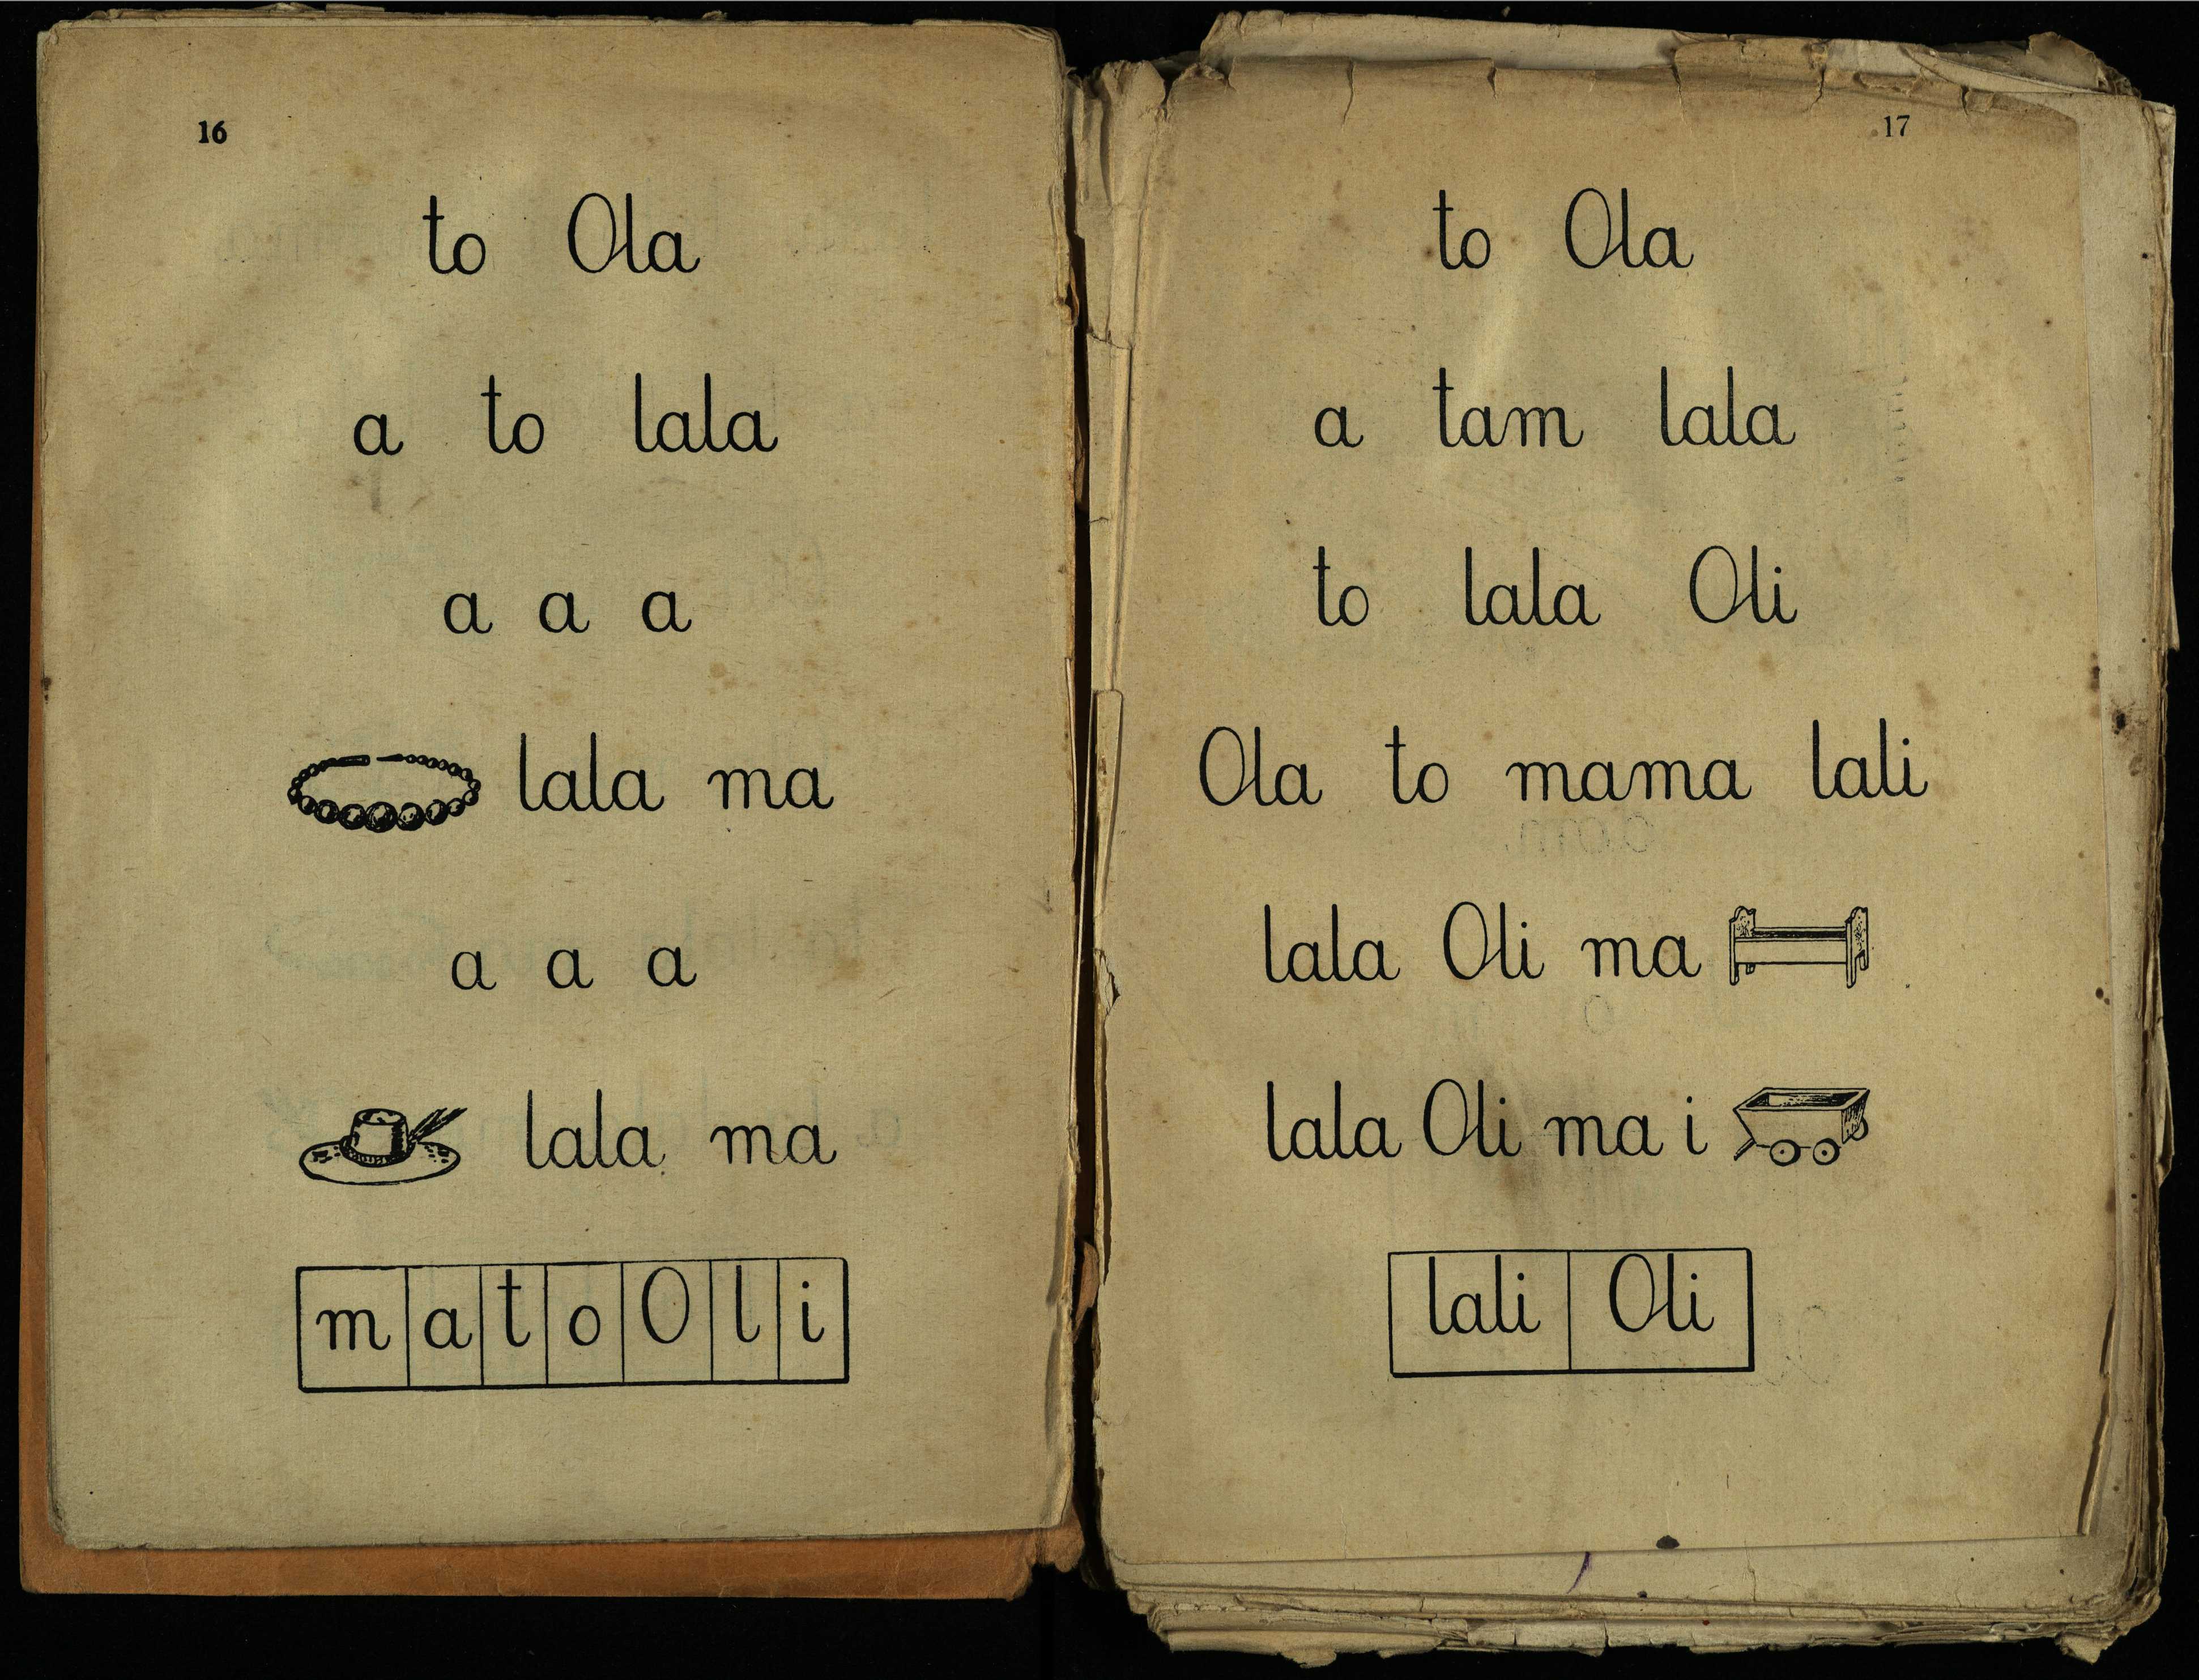 16
to Ola
a to lala
a a a
lala ma
a a a
lala ma
m a t o O l i
17
to Ola
a tam lala
to lala Oli
Ola to mama lali
lala Oli ma
lala Oli ma i
lali Oli